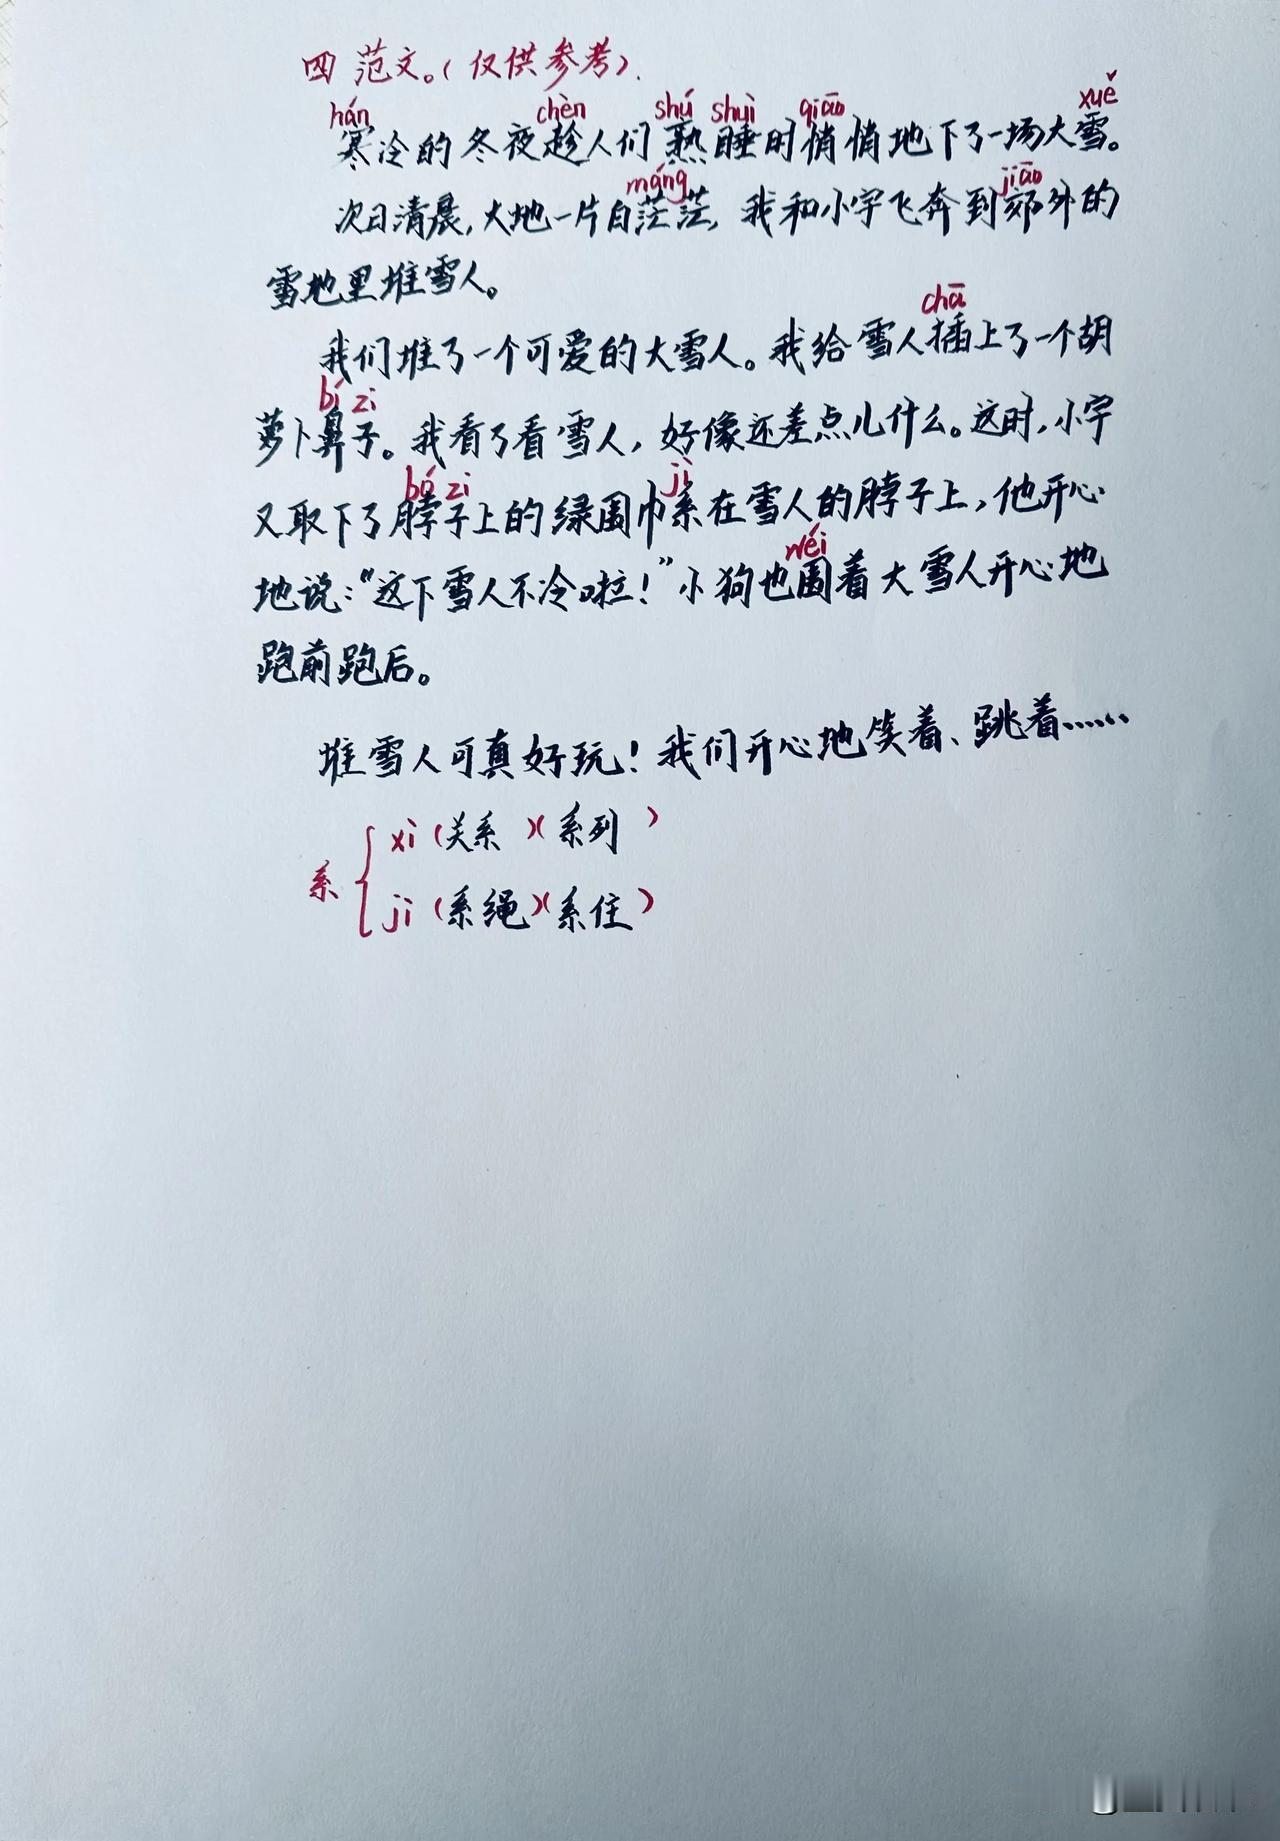 四 范文。(仅供参考).
hán chèn shú shuì qiāo xuě
寒冷的冬夜趁人们熟睡时悄悄地下了一场大雪。
máng jiāo
次日清晨,大地一片白茫茫,我和小宇飞奔到郊外的
雪地里堆雪人。
chā
我们堆了一个可爱的大雪人。我给雪人插上了一个胡
bí zi
萝卜鼻子。我看了看雪人,好像还差点儿什么。这时,小宇
bó zi jì
又取下了脖子上的绿围巾系在雪人的脖子上,他开心
wéi
地说:“这下雪人不冷啦!”小狗也围着大雪人开心地
跑前跑后。
堆雪人可真好玩!我们开心地笑着、跳着……
系
xì (关系)(系列)
jì (系绳)(系住)